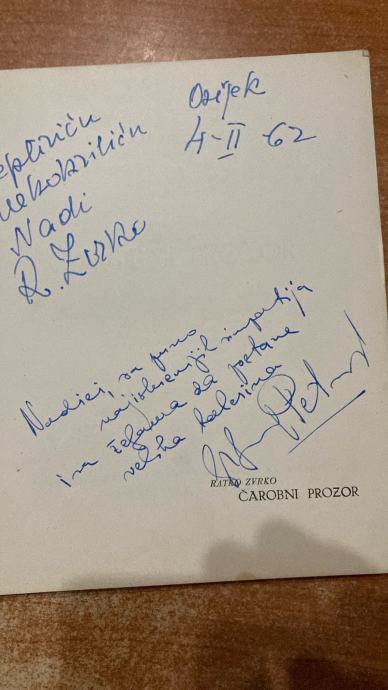 Osijek
4-II-62
Nadi
R. Zvrko
Nadici, sa puno
najiskrenijih simpatija
i sa željama da postane
velika balerina
RATKO ZVRKO
ČAROBNI PROZOR